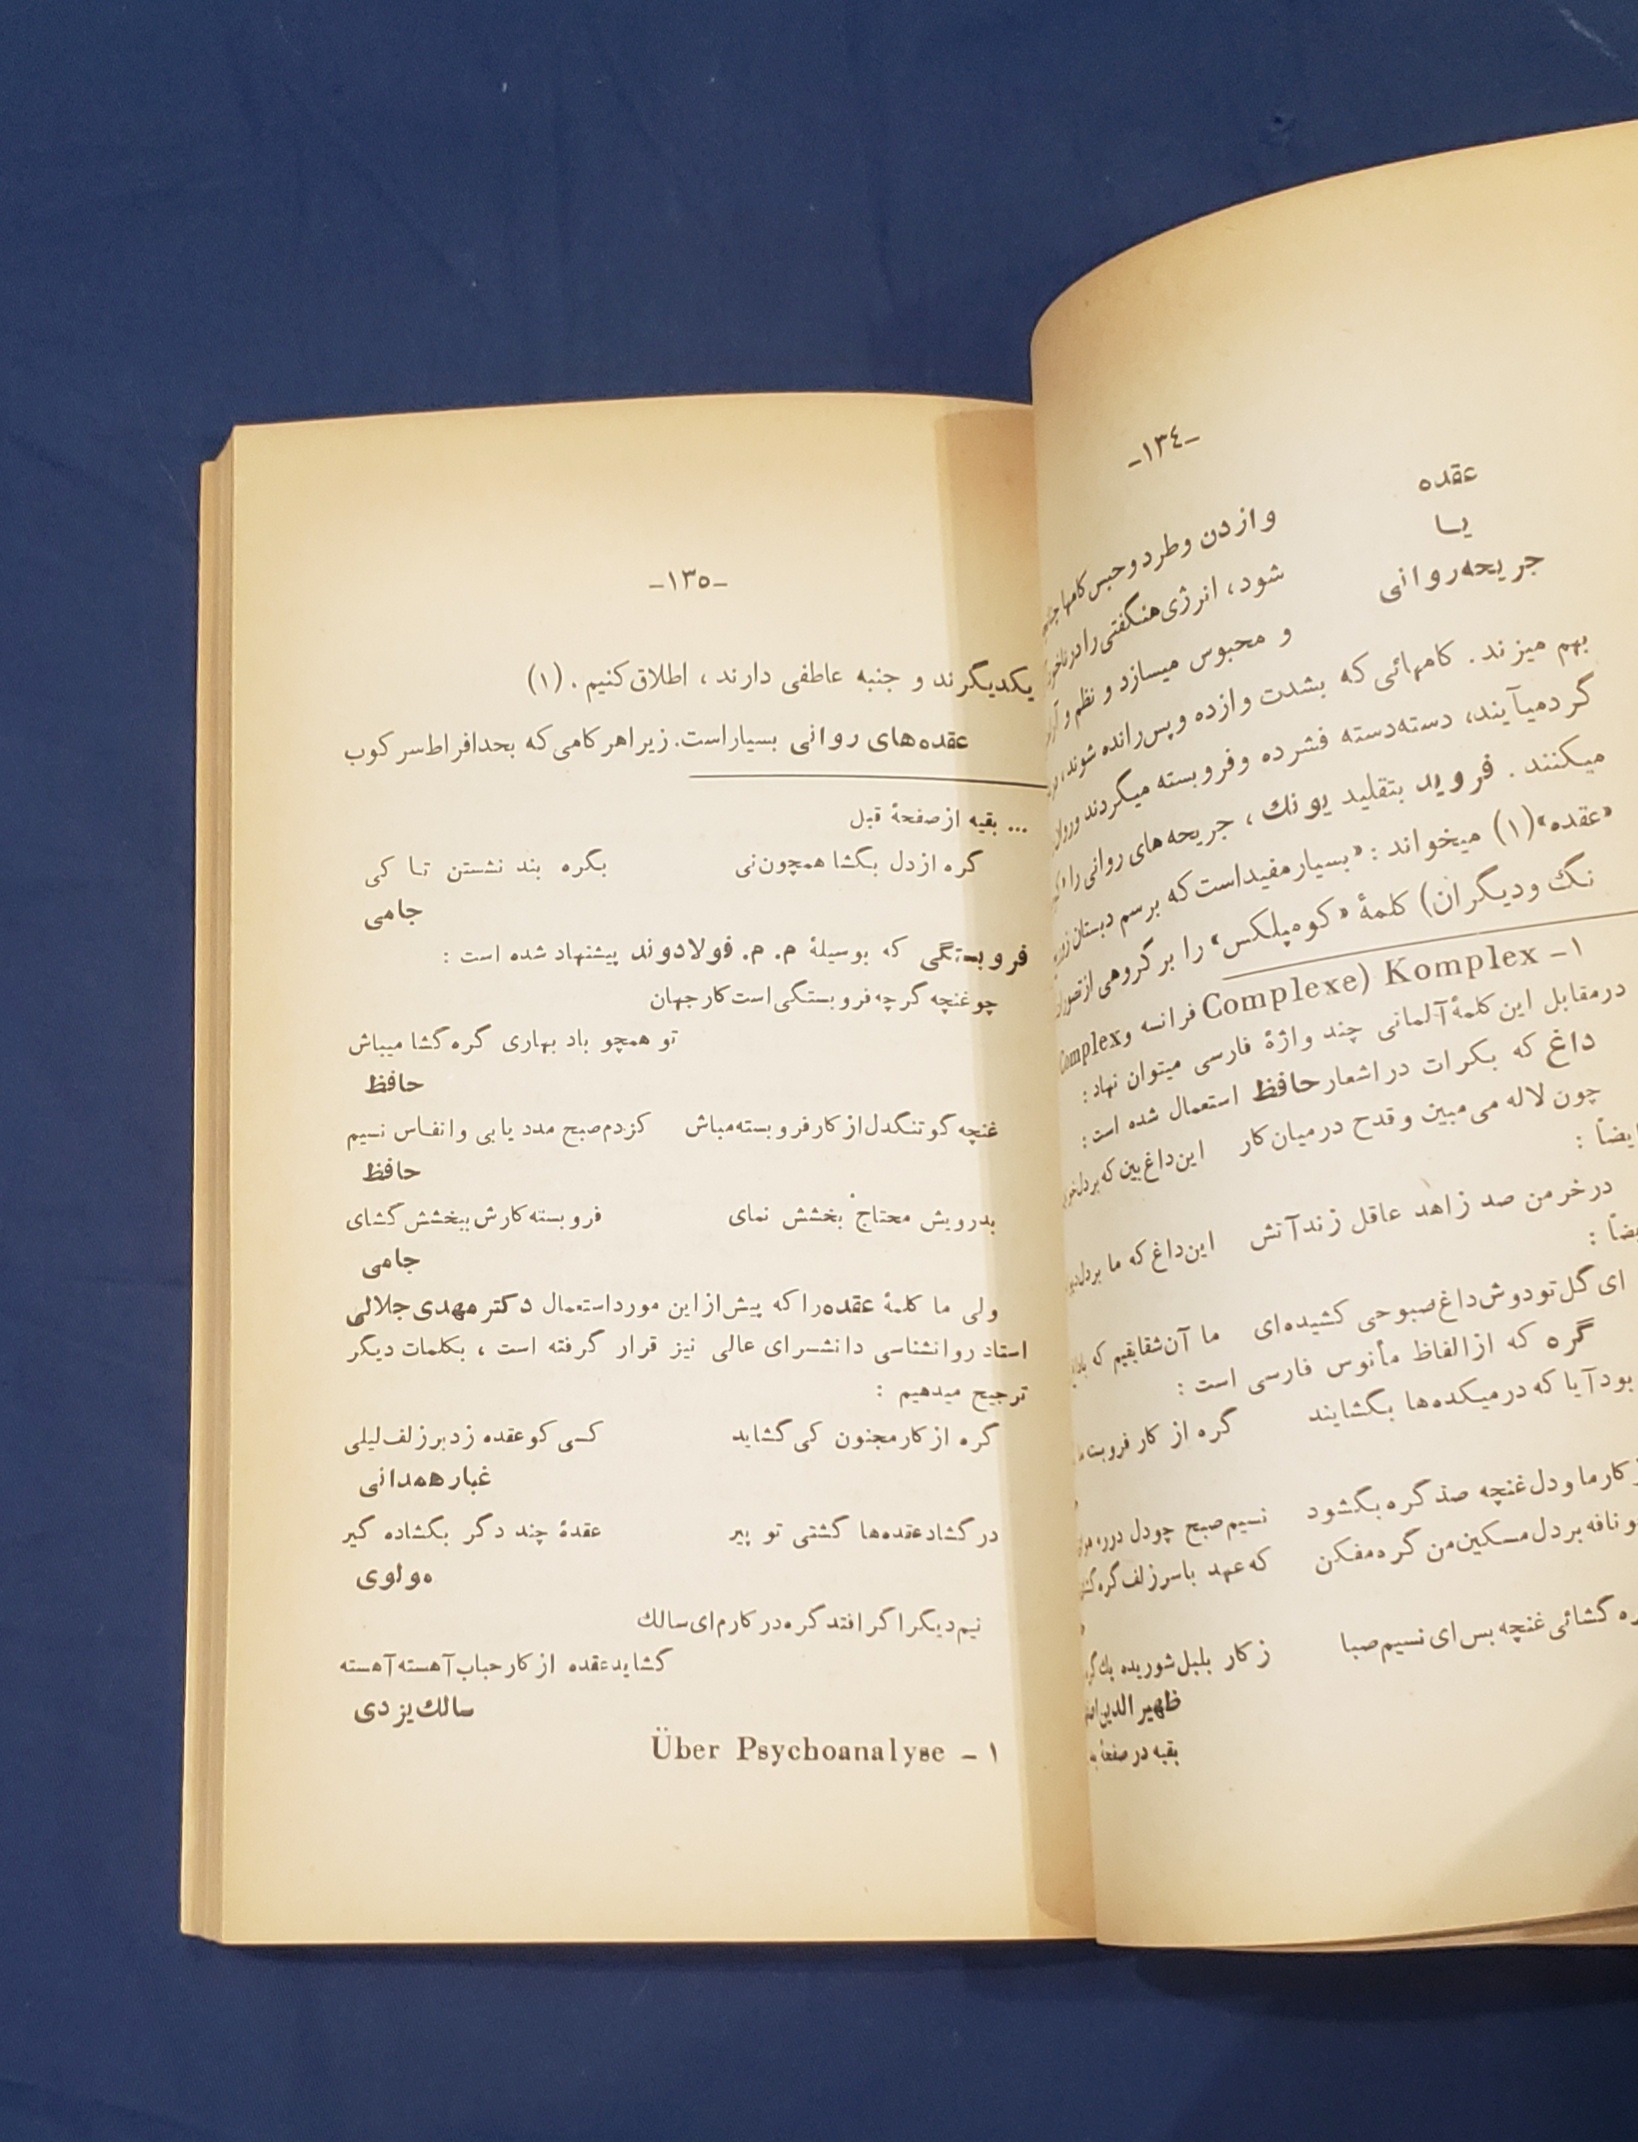 -۱۳٤-
عقده
یا
جریحه‌روانی
وازدن وطرد وحبس کامها
شود، انرژی هنگفتی را در
و محبوس میسازد و نظم و
بهم میزند. کامهائی که بشدت وازده وپس‌رانده شوند،
گردمیآیند، دسته‌دسته فشرده وفروبسته میگردند
میکنند. فروید بتقلید یونك، جریحه‌های روانی را
«عقده»(۱) میخواند: «بسیارمفیداست که برسم دبستان
نگ ودیگران) کلمهٔ «کومپلکس» را بر گروهی از
۱- Komplex (Complexe فرانسه و Complex
درمقابل این کلمهٔ آلمانی چند واژهٔ فارسی میتوان نهاد:
داغ که بکرات دراشعار حافظ استعمال شده است:
چون لاله می مبین وقدح درمیان کار این‌داغ بین که بردل
ایضاً:
درخرمن صد زاهد عاقل زندآتش این‌داغ که ما بردل
ای گل‌تودوش‌داغ‌صبوحی کشیده‌ای ما آن‌شقایقیم که
گره که ازالفاظ مأنوس فارسی است:
بودآیا که درمیکده‌ها بگشایند گره از کار
کارما ودل‌غنچه صد گره بگشود نسیم صبح چودل
نافه بردل مسکین‌من گره‌مفکن که عهد باسرزلف
گشائی غنچه بس ای نسیم صبا زکار بلبل شوریده
ظهیرالدین
بقیه در صفحهٔ
-۱۳۵-
یکدیگرند و جنبه عاطفی دارند، اطلاق کنیم. (۱)
عقده‌های روانی بسیاراست. زیراهرکامی که بحدافراط سرکوب
... بقیه ازصفحهٔ قبل
گره ازدل بگشا همچون‌نی بگره بند نشستن تا کی
جامی
فروبستگی که بوسیلهٔ م. م. فولادوند پیشنهاد شده است:
چوغنچه گرچه فروبستگی است کارجهان
تو همچو باد بهاری گره گشا میباش
حافظ
غنچه گوتنگدل ازکار فروبسته‌مباش کزدم‌صبح مدد یابی وانفاس نسیم
حافظ
بدرویش محتاج بخشش نمای فروبسته‌کارش ببخشش گشای
جامی
ولی ما کلمهٔ عقده را که پیش ازاین مورداستعمال دکتر مهدی جلالی
استاد روانشناسی دانشسرای عالی نیز قرار گرفته است، بکلمات دیگر
ترجیح میدهیم:
گره ازکار مجنون کی گشاید کسی کوعقده زد برزلف لیلی
غبارهمدانی
درگشاد عقده‌ها گشتی تو پیر عقدهٔ چند دگر بگشاده گیر
مولوی
نیم‌دیگرا گرافتد گره‌درکارم‌ای سالك
گشاید عقده ازکار حباب آهسته آهسته
سالك یزدی
۱ - Über Psychoanalyse